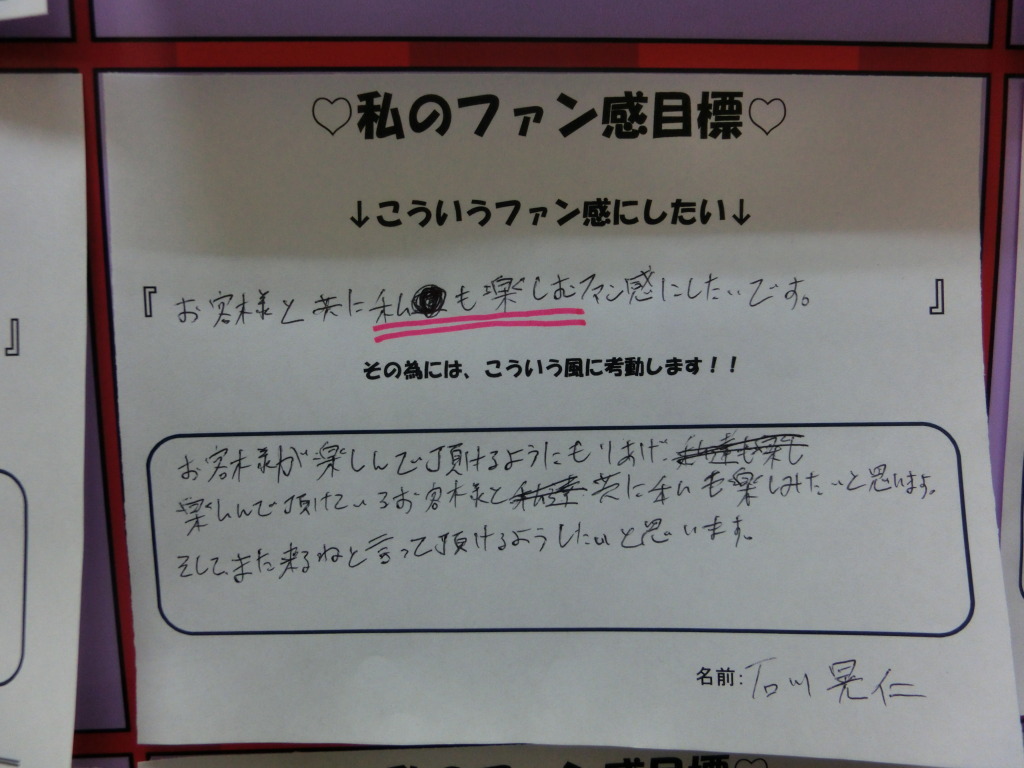 ♡私のファン感目標♡
↓こういうファン感にしたい↓
『お客様と共に私も楽しむファン感にしたいです。』
』
その為には、こういう風に考動します！！
お客様が楽しんで頂けるようにもりあげ、私達も楽し
楽しんで頂けているお客様と私達共に私も楽しみたいと思います。
そして、また来るねと言って頂けるようしたいと思います。
名前:石川晃仁
私のファン感目標♡